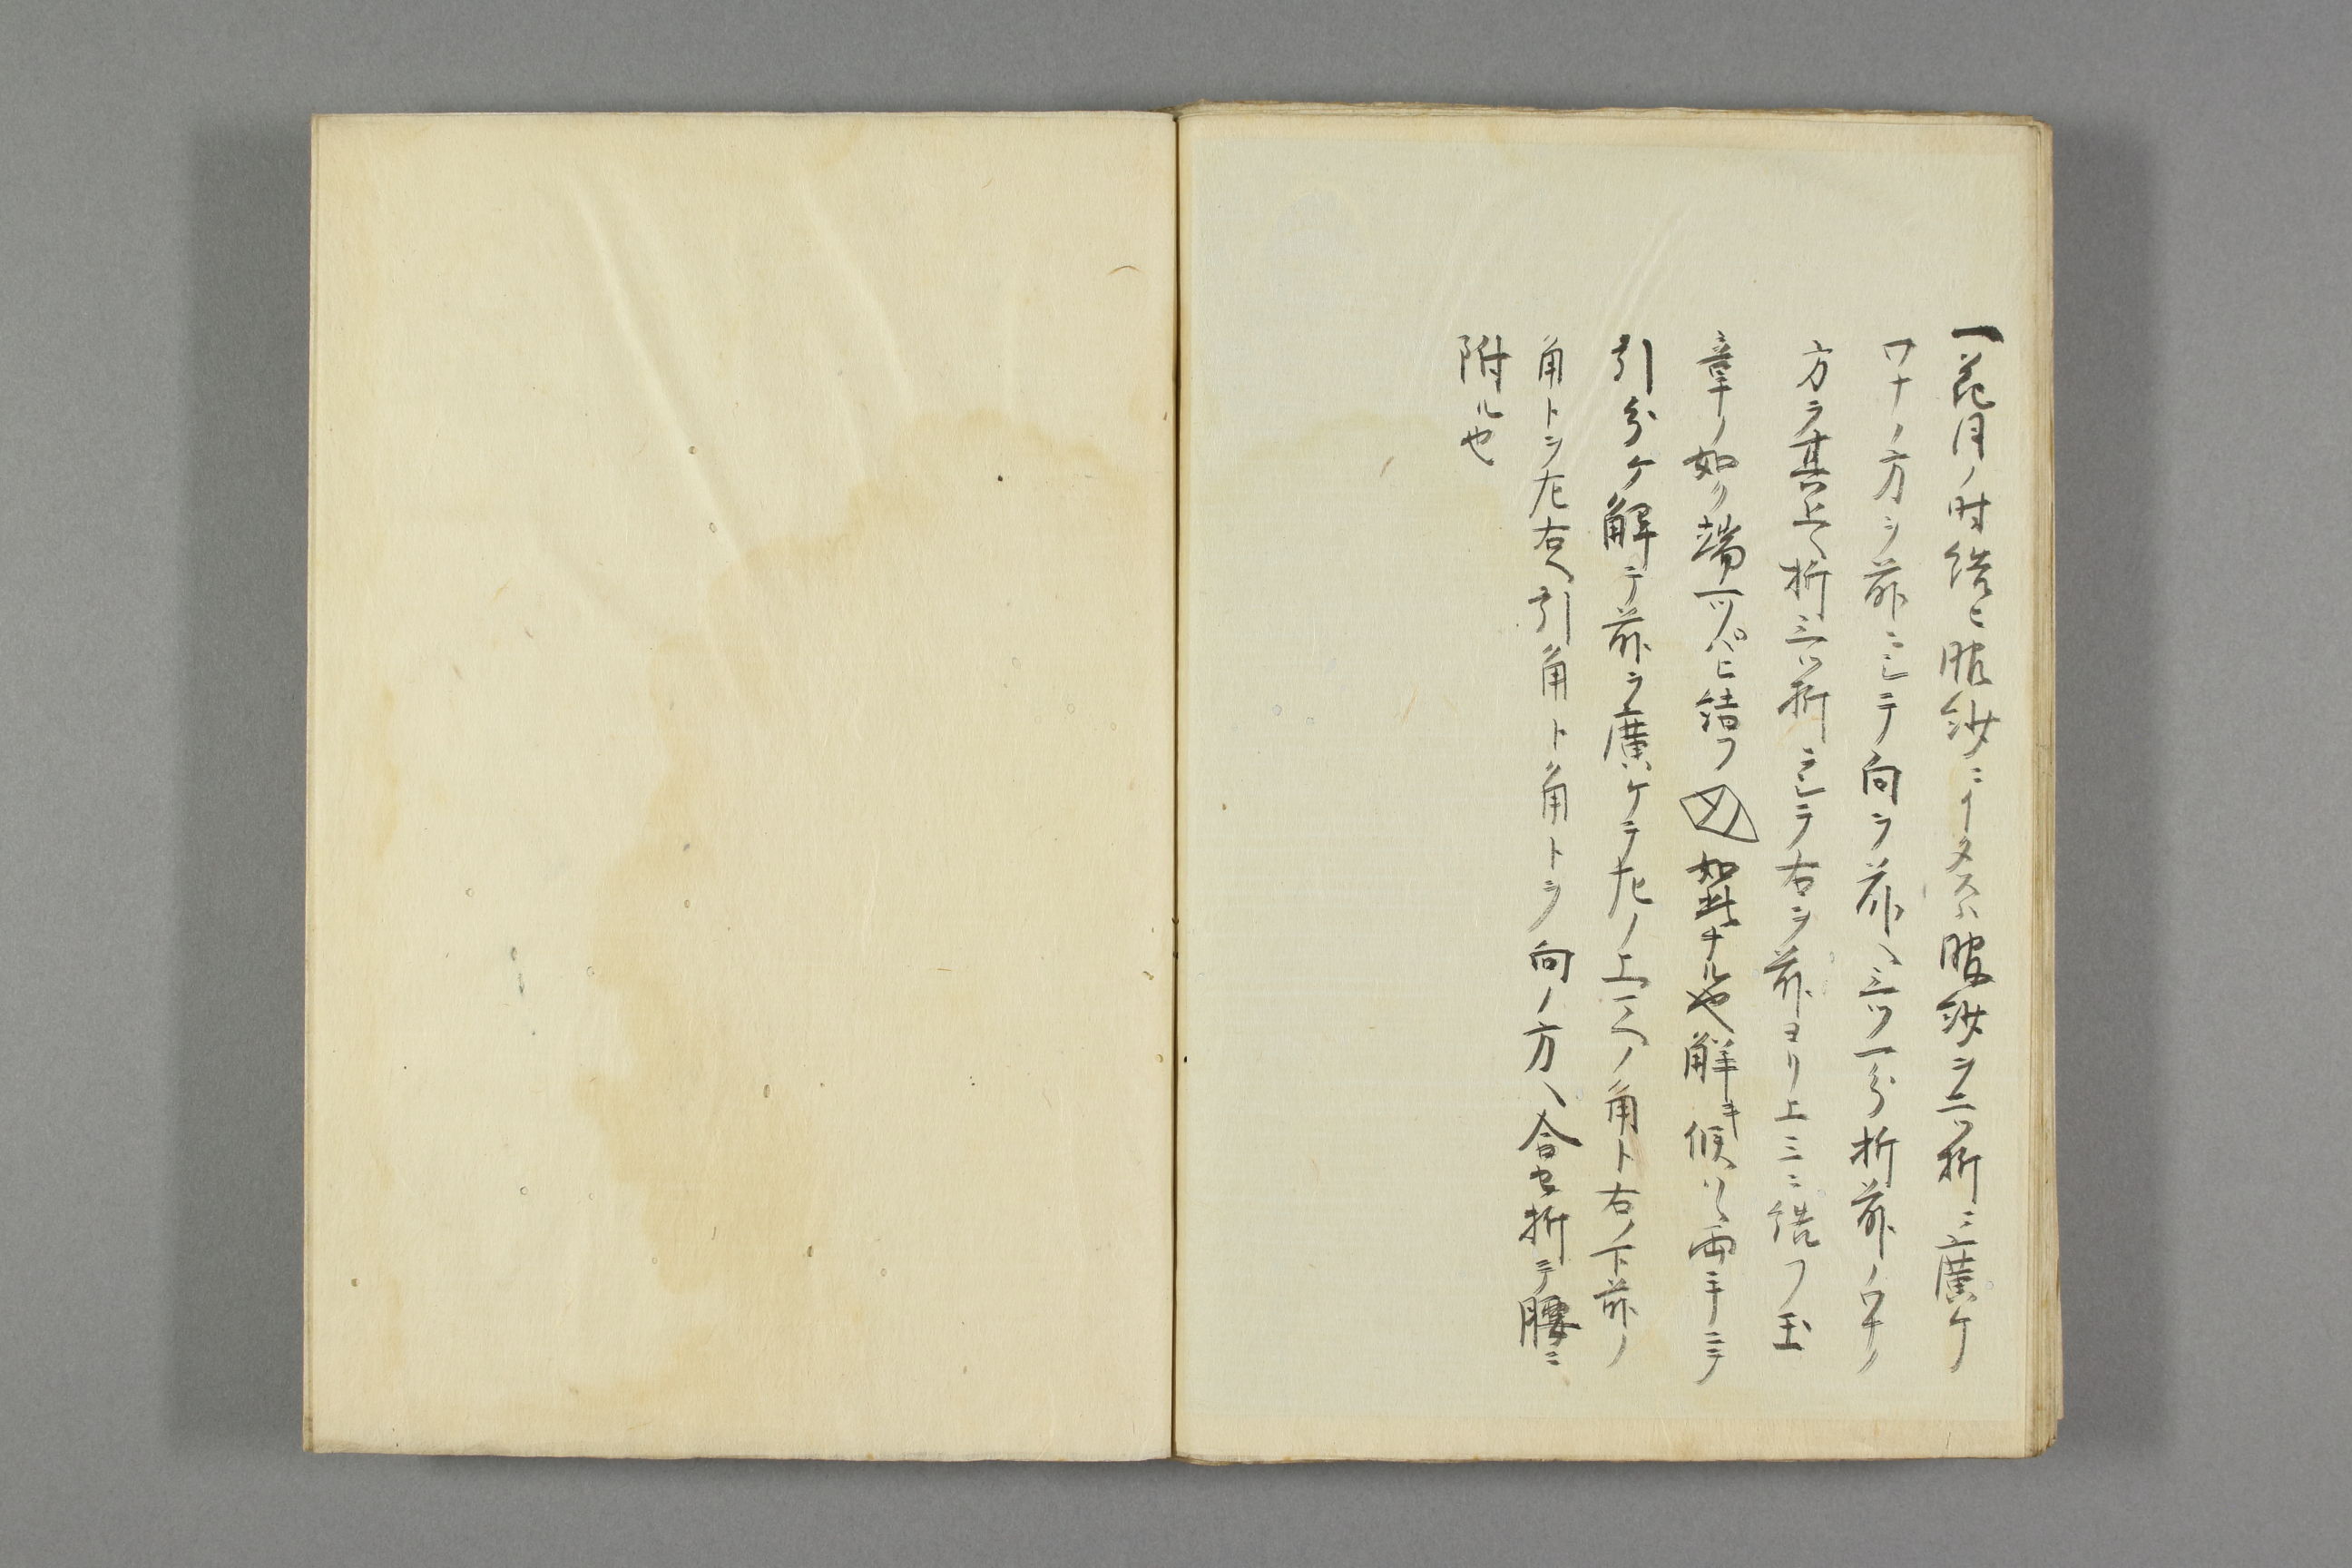 一花月ノ時結ヒ服紗ニイタスハ服紗ヲ二ツ折ニ廣ケ
ワナノ方ヲ前ニシテ向ヲ前ヘ三ツ一分折前ノワナノ
方ヲ其上ヘ折三ツ折ニシテ右ヲ前ヨリ上ミニ結フ玉
章ノ如ク端一ツパヒ結フ如此ナル也解キ候ハヽ両手ニテ
引分ケ解テ前ヲ廣ケテ左ノ上ミヘノ角ト右ノ下前ノ
角トヲ左右ヘ引角ト角トヲ向ノ方ヘ合セ折テ腰ニ
附ル也